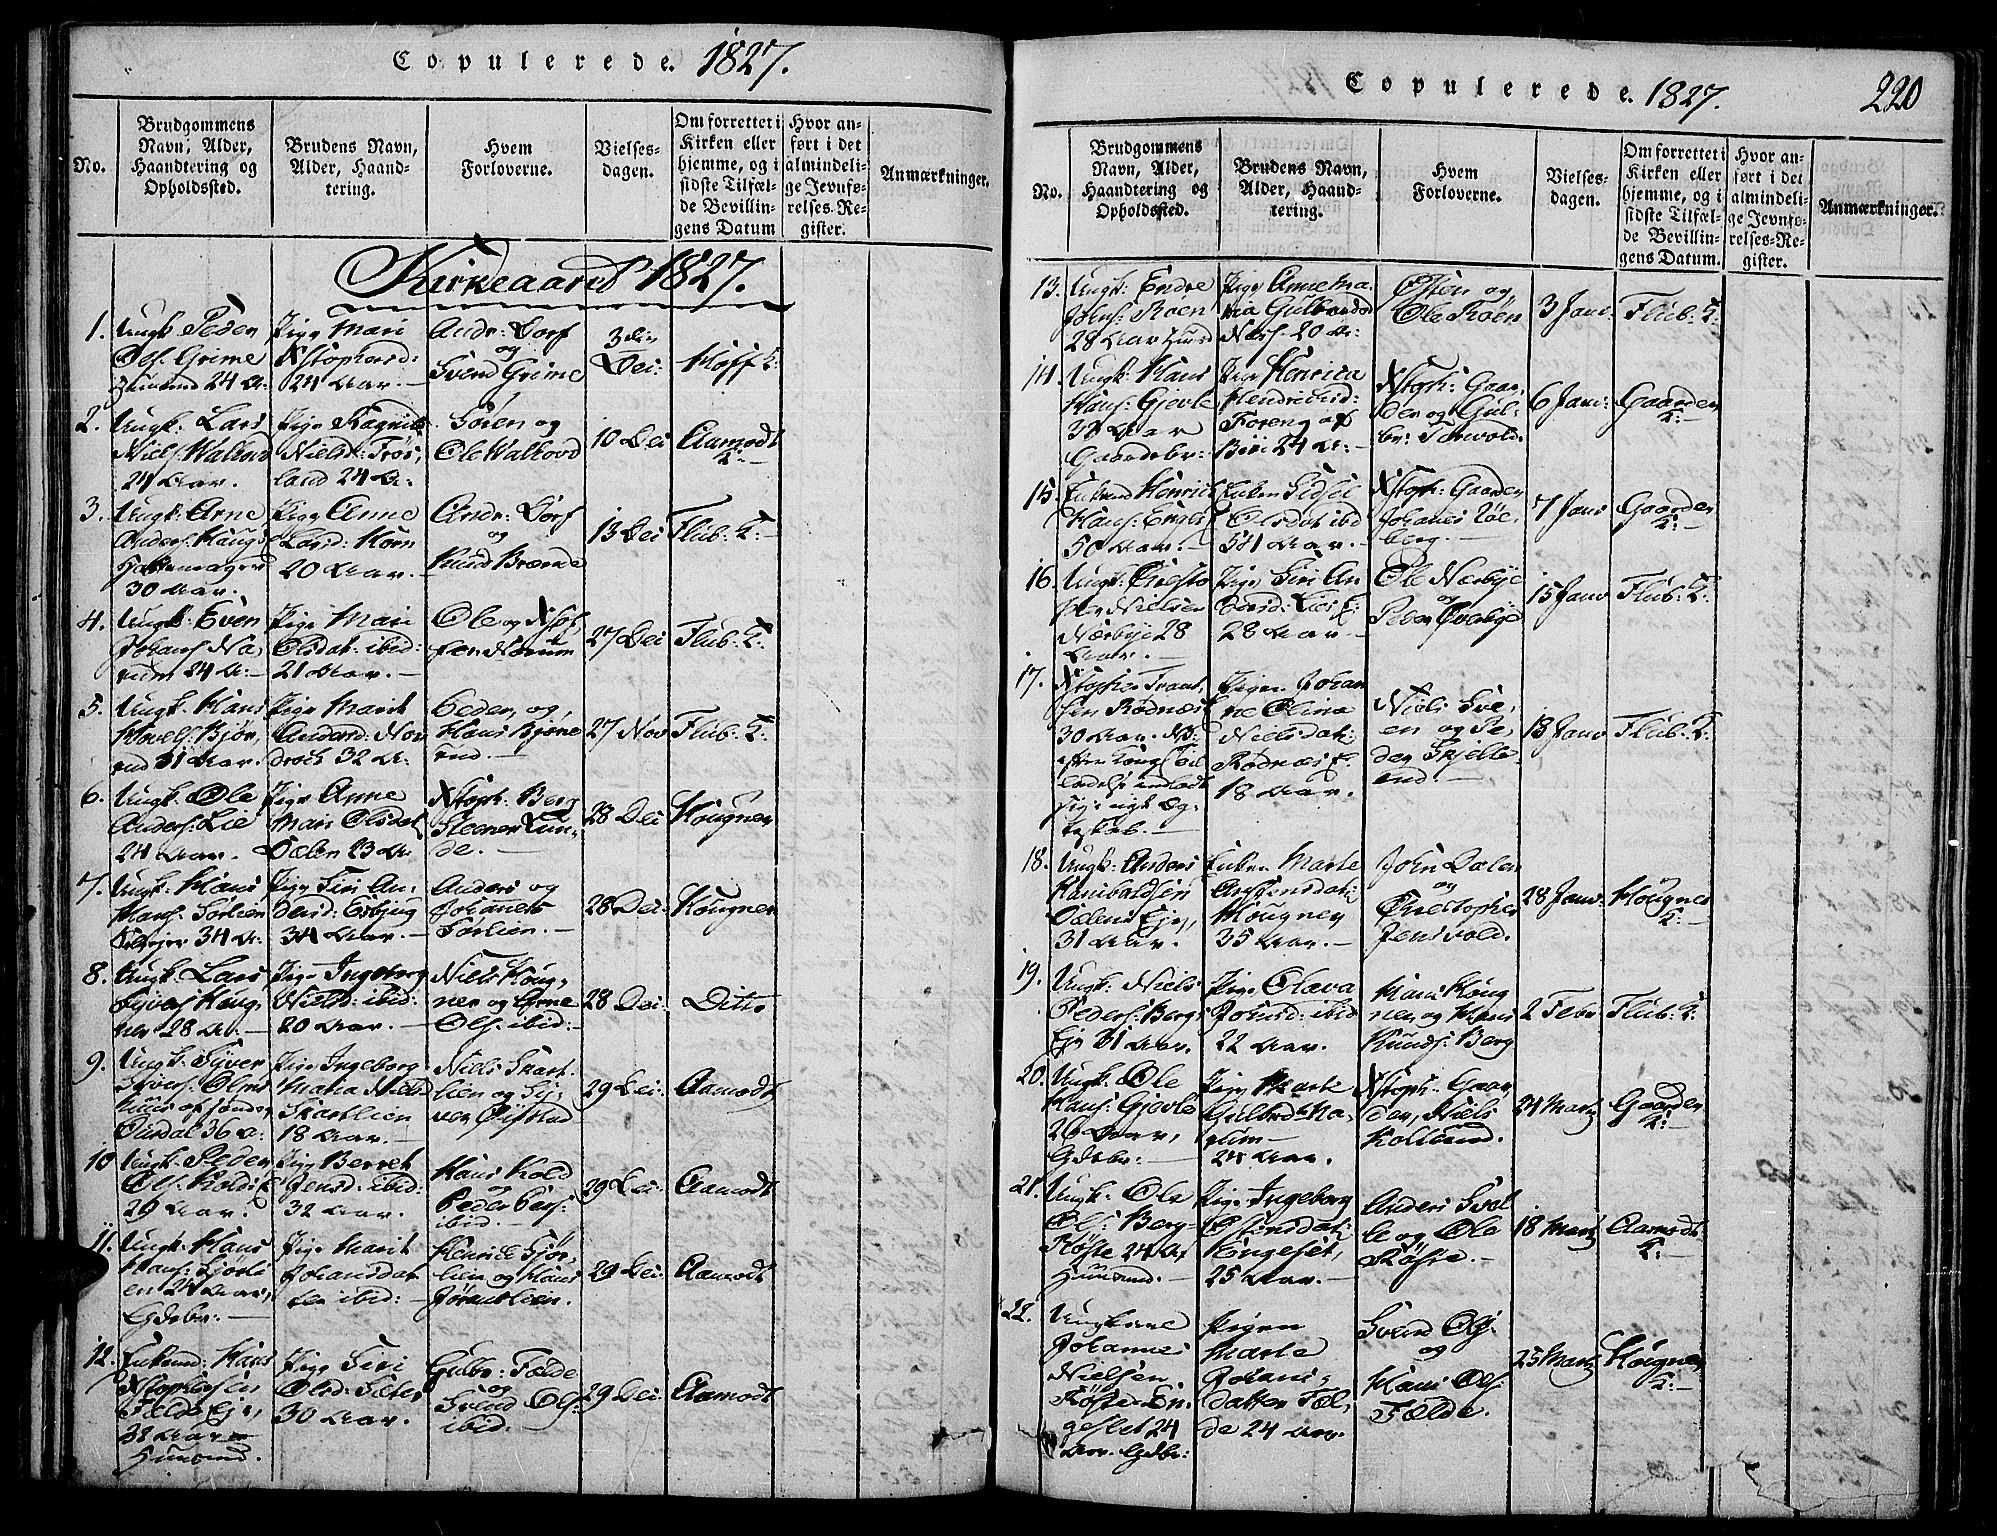 Copulerede. 1827.
No.
Brudgommens
Navn, Alder,
Haandtering og
Opholdssted.
Brudens Navn,
Alder, Haand-
tering.
Hvem
Forloverne.
Vielses-
dagen.
Om forrettet i
Kirken eller
hjemme, og i
sidste Tilfæl-
de Bevillin-
gens Datum
Hvor an-
ført i det
almindeli-
ge Jevnfø-
relses-Re-
gister.
Anmærkninger.
Kirkeaaret 1827.
1.
Ungk: Peder
Ols: Grime
24 A:
Pige Mari
Xstophersd:
24 Aar.
Andr: Dorf
og
Svend Grime
3 die
Dec:
Hoff K:
2.
Ungk: Lars
Niels: Walhovd
24 Aar.
Pige Ragnild
Nielsd:
land 24 A:
Sören og
Ole Walhovd
10 Dec
Aamodt
K:
3.
Ungk: Arne
Anders: Haug
30 Aar.
Pige Anne
Larsd: Korn
20 Aar.
Andr: Dorf
og
Knud Brænde
13 Dec
Flub: K:
4.
Ungk: Even
Johans: No,
rum 24 A:
Pige Mari
Olsdat: ibid:
21 Aar.
Ole og Xstof,
fer Norum
27 Dec
Flub: K:
5.
Ungk: Hans
Povels: Bjør,
rud 31 Aar.
Pige Marit
Andersd: Nor
droch 32 A:
Peder, og,
Hans Bjøre
rud.
27 Nov
Flub: K:
6.
Ungk: Ole
Anders: Lie
24 Aar.
Pige Anne
Mari Olsdat
Dælen 23 A:
Xstoph: Berg
Steener Lun-
de.
28 Dec
Kougner
7.
Ungk: Hans
Hans: Sørlien
34 A:
Pige Siri An-
dersd: Esbjug
34 Aar.
Anders og
Johannes
Sørlien.
28 Dec:
Kougner
8.
Ungk: Lars
Syvers: Koug,
ner 28 A:
Pige Ingeborg
Nielsd: ibid:
20 Aar.
Niels Koug,
ner og Arne
Ols: ibid:
28 Dec:
Ditto
9.
Ungk: Syver
Syvers: Olms
huus af søndre
Aurdal 36 A:
Pige Ingeborg
Maria Nielsd
Skartlien
18 Aar.
Niels Skart,
lien og Sy,
ver Øifstad
29 Dec:
Aamodt
10
Ungk: Peder
Ols: Kolds E
29 Aar.
Pige Berret
Jensd: ibid:
32 Aar.
Hans Kold
og
Peder Pers:
ibid.
29 Dec:
Aamodt
11.
Ungk: Hans
Hans: Sjørli
en 24 Aar,
Gdebr:
Pige Marit
Johansdat
ter ibid:
Henrich Sjør,
lien og Hans
29 Dec:
Aamodt
12.
Enkemd: Hans
Xstophersen
Fælde Eje,
38 Aar
Huusmd.
Pige Siri
Olsd: Sæter
30 Aar.
Gulbr: Fælde
og
Svend Ols:
ibid.
29 Dec:
Aamodt
Copulerede. 1827.
220
No.
Brudgommens
Navn, Alder,
Haandtering og
Opholdssted.
Brudens Navn,
Alder, Haand-
tering.
Hvem
Forloverne.
Vielses-
dagen.
Om forrettet i
Kirken eller
hjemme, og i
sidste Tilfæl-
de Bevillin-
gens Datum.
Hvor an-
ført i det
almindeli-
ge Jevnfø-
relses-Re-
gister.
Anmærkninger.
13.
Ungk: Endre
Johns: Röen
28 Aar Huusmd
Pige Anne Ma,
ria Gulbrandsd
20 A:
Østen og
Ole Röen
3 Janv:
Flub: K:
14.
Ungk: Hans
Hans: Gjevle
32 Aar
Gaardebr:
Pige Henrica
Hendrichsd:
Foseng af
Biri 24 A:
Xstoph: Gaar,
der og Gul-
br: Torvold.
6 Janv:
Gaarder
K:
15.
Enkemd Henrich
Hans: Engl:
50 Aar.
Enken Sidsel
Olsdat ibd
51 Aar.
Xstoph: Gaarder
Johanes Löe
berg.
7 Janv
Gaarder
K:
16.
Ungk: Christo
pher Nielsen
Nærbye 28
Aar.
Pige Siri An
dersd: Lies E:
28 Aar.
Ole Nærbye
og
Peder Øverbye
15 Janv
Flub: K:
17.
Xstopher Frant,
sen Rødnæs
30 Aar. NB:
efter Kongl: Til
ladelse indlodt
sig i nyt Æg
teskab.
Pigen Johan
ne Olina
Nielsdat:
Rødnæs E.
18 Aar.
Niels Sve,
en og Pe,
der Skjelle
rud
18 Janv
Flub: K:
18.
Ungk: Anders
Hanibaldsen
Dælens Eje,
31 Aar.
Enken Marte
Christensdat:
Kougner
35 Aar.
John Dælen
og
Christopher
Jensvold.
28 Janv:
Kougner
K:
19.
Ungk: Niels
Peders: Bergs
Eje 31 Aar.
Pige Olava
Johnsd: ibid
22 Aar.
Hans Koug
ner og Hans
Knuds: Berg
2 Febr
Flub: K:
20.
Ungk: Ole
Hans: Gjevle
26 Aar,
Gdebr:
Pige Marte
Gulbrd: No,
rum
24 Aar.
Xstoph: Gaar
der, Niels
Kollerud.
24 Marts
Gaarder
K:
21.
Ungk: Ole
Ols: Berg
Röste 24 A:
Huusmd.
Pige Ingeborg
Østensdat:
Engeset,
25 Aar.
Anders Svel
le og Ole
Röste.
18 Marts
Aamodt
K:
22.
Ungkarl
Johannes
Nielsen
Röste En,
geset 24
Aar. Gdbr:
Pigen
Marte
Johans,
datter Fæl,
de 24 Aar.
Svend Ols:
og
Hans Ols:
Fælde.
25 Marts
Kougner
K: